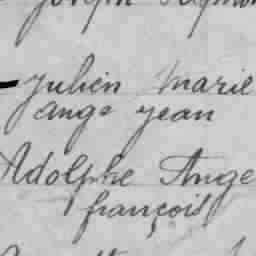 Joseph
Julien Marie
ange jean
Adolphe Ange
françois